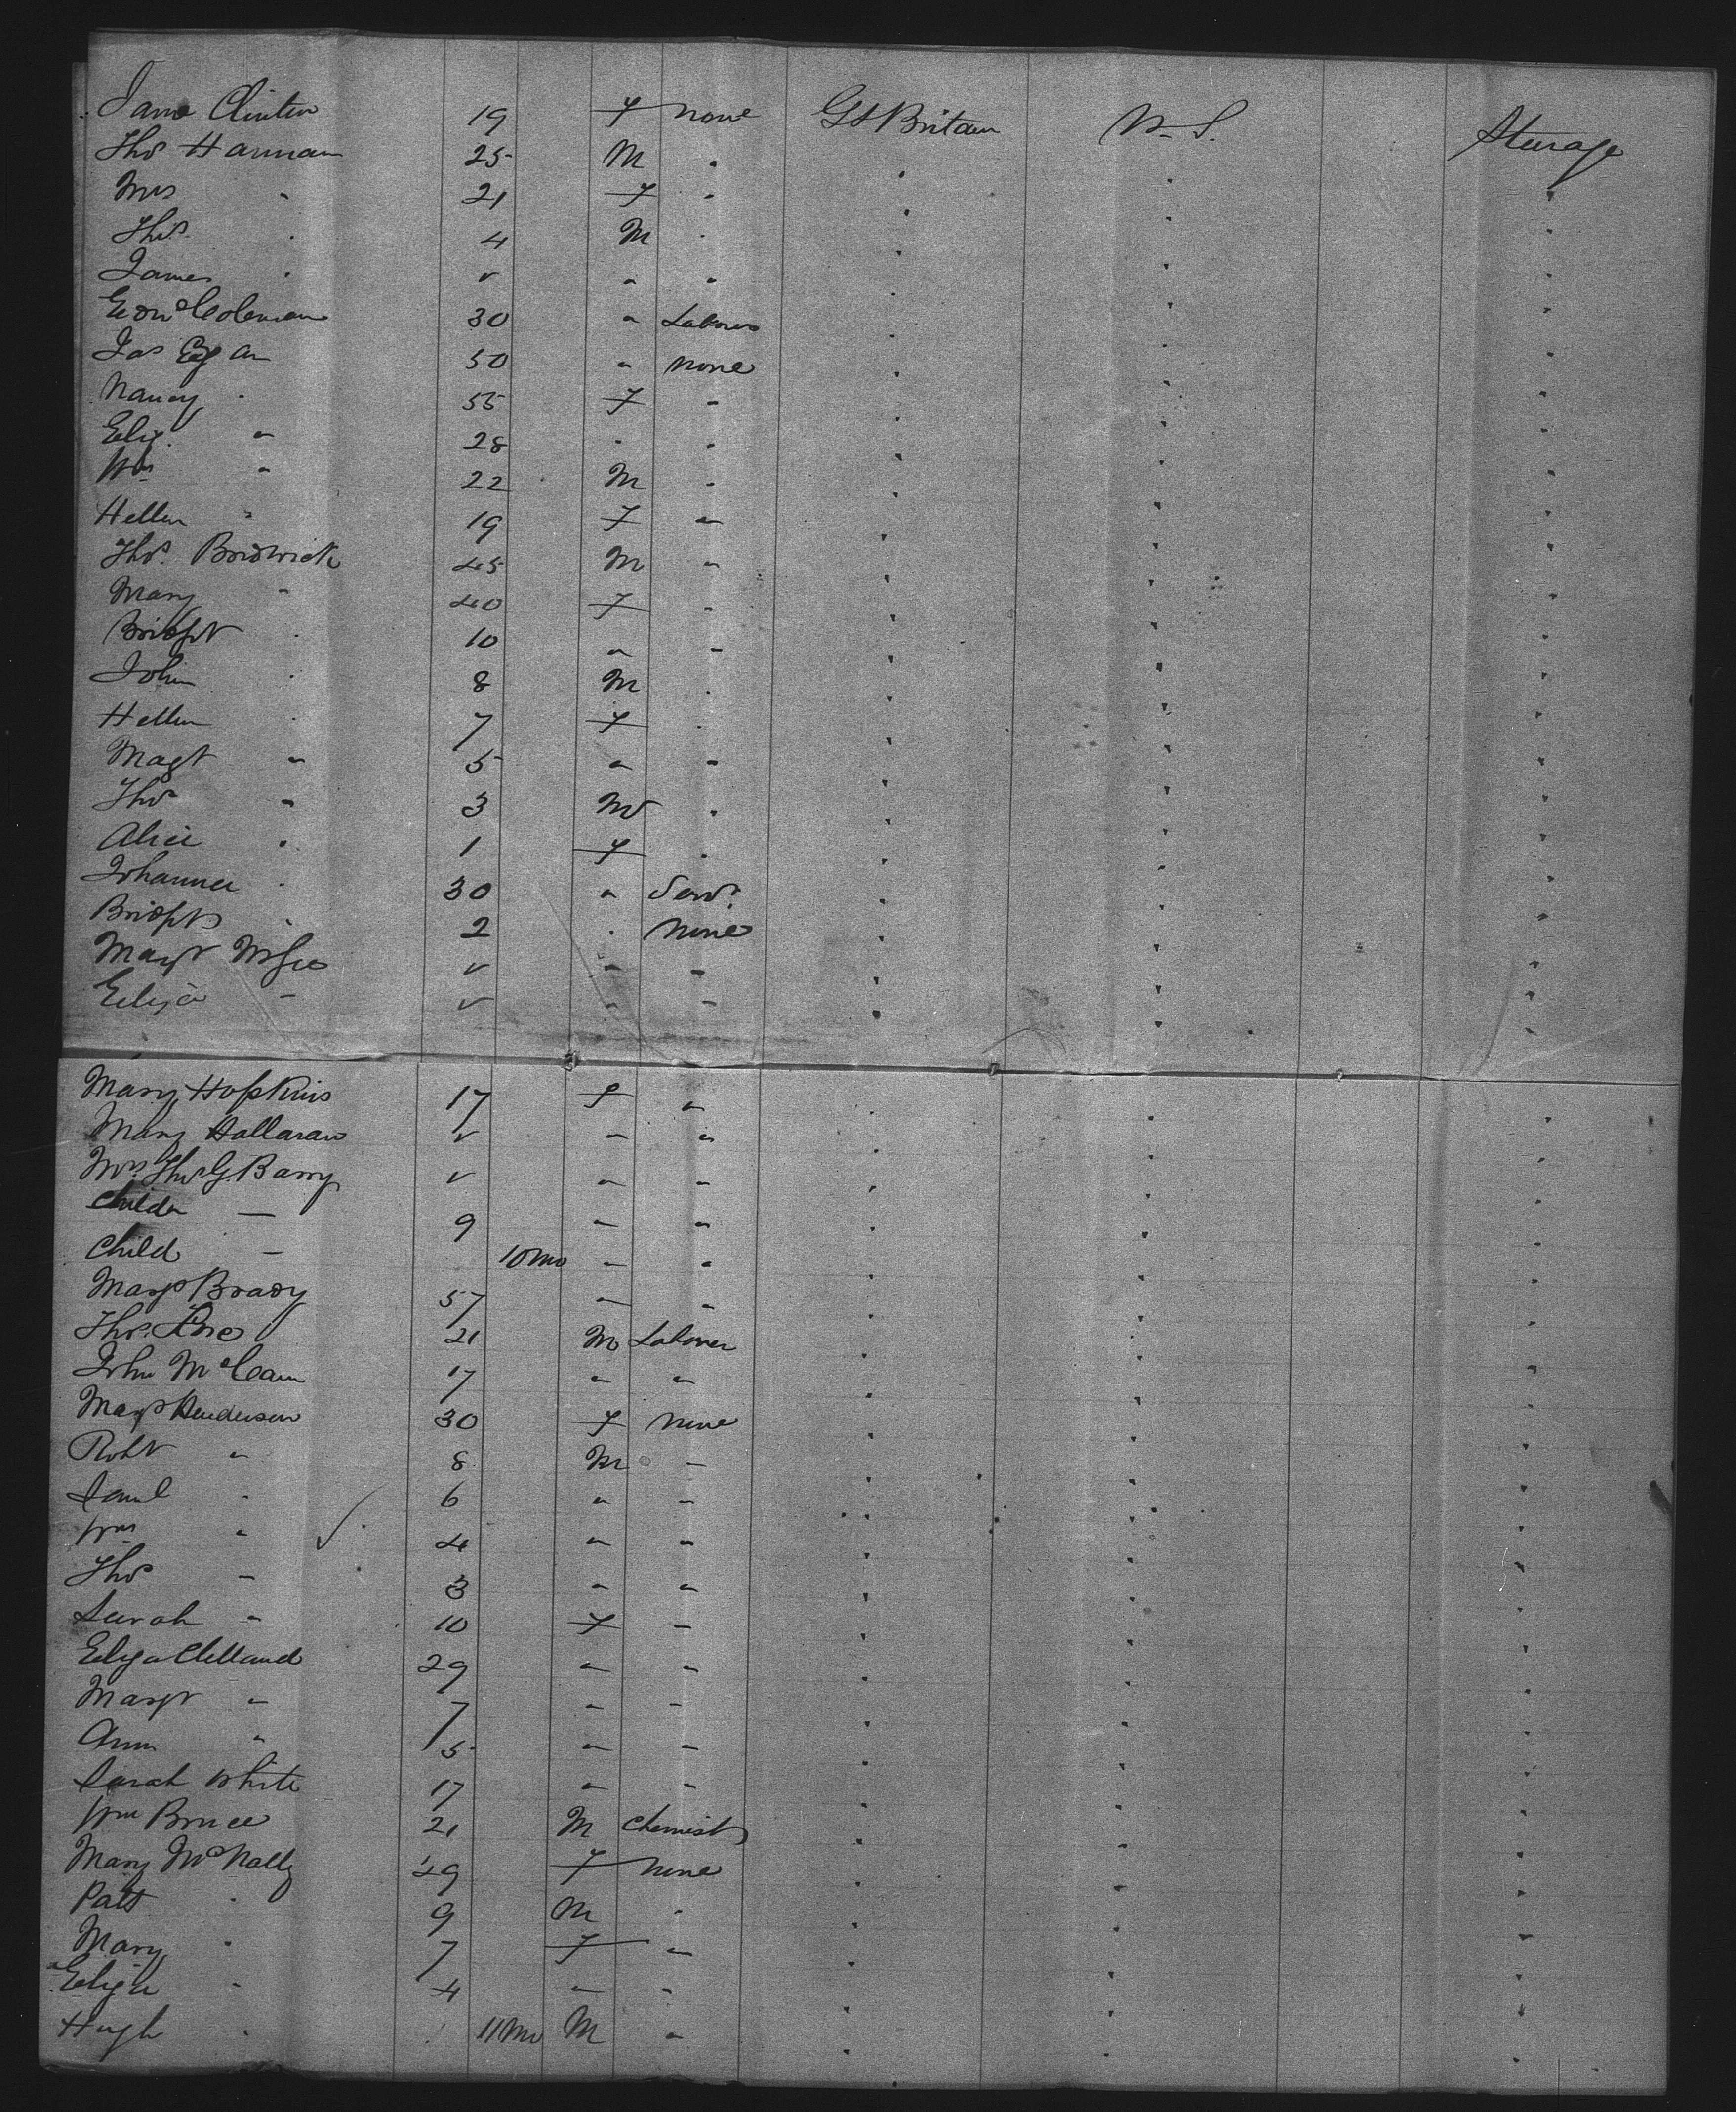 Jane Clinton 19 F none Gt Britain U.S. Steerage
Thos Hannan 25 M " " " "
Mrs " 21 F " " " "
Thos " 4 M " " " "
James " ✓ " " " " "
Edwd Coleman 30 " Laborer " " "
Jas Egan 50 " none " " "
Nancy " 55 F " " " "
Eliz. " 28 " " " " "
Wm " 22 M " " " "
Hellen " 19 F " " " "
Thos. Bridwick 45 M " " " "
Mary " 40 F " " " "
Bridgt " 10 " " " " "
John " 8 M " " " "
Hellen " 7 F " " " "
Magt " 5 " " " " "
Thos " 3 M " " " "
Alice " 1 F " " " "
Johanna " 30 " Servt. " " "
Bridgt " 2 " None " " "
Margt ✓ " " " " "
Eliza " ✓ " " " " "
Mary Hopkins 17 F " " " "
Mary Hallaran ✓ " " " " "
Mrs Thos G. Barry ✓ " " " " "
Child — 9 " " " " "
Child — 10 mo " " " " "
Margt Brady 57 " " " " "
Thos. 21 M Laborer " " "
John McCann 17 " " " " "
Margt Henderson 30 F None " " "
Robt " 8 M " " " "
Saml " 6 " " " " "
Wm " ✓ 4 " " " " "
Thos " 3 " " " " "
Sarah " 10 F " " " "
Eliza Clelland 29 " " " " "
Margt " 7 " " " " "
Ann " 5 " " " " "
Sarah White 17 " " " " "
Wm Bruce 21 M Chemist " " "
Mary McNally 29 F None " " "
Patt " 9 M " " " "
Mary " 7 F " " " "
Eliza " 4 " " " " "
Hugh " 11 mo M " " " "